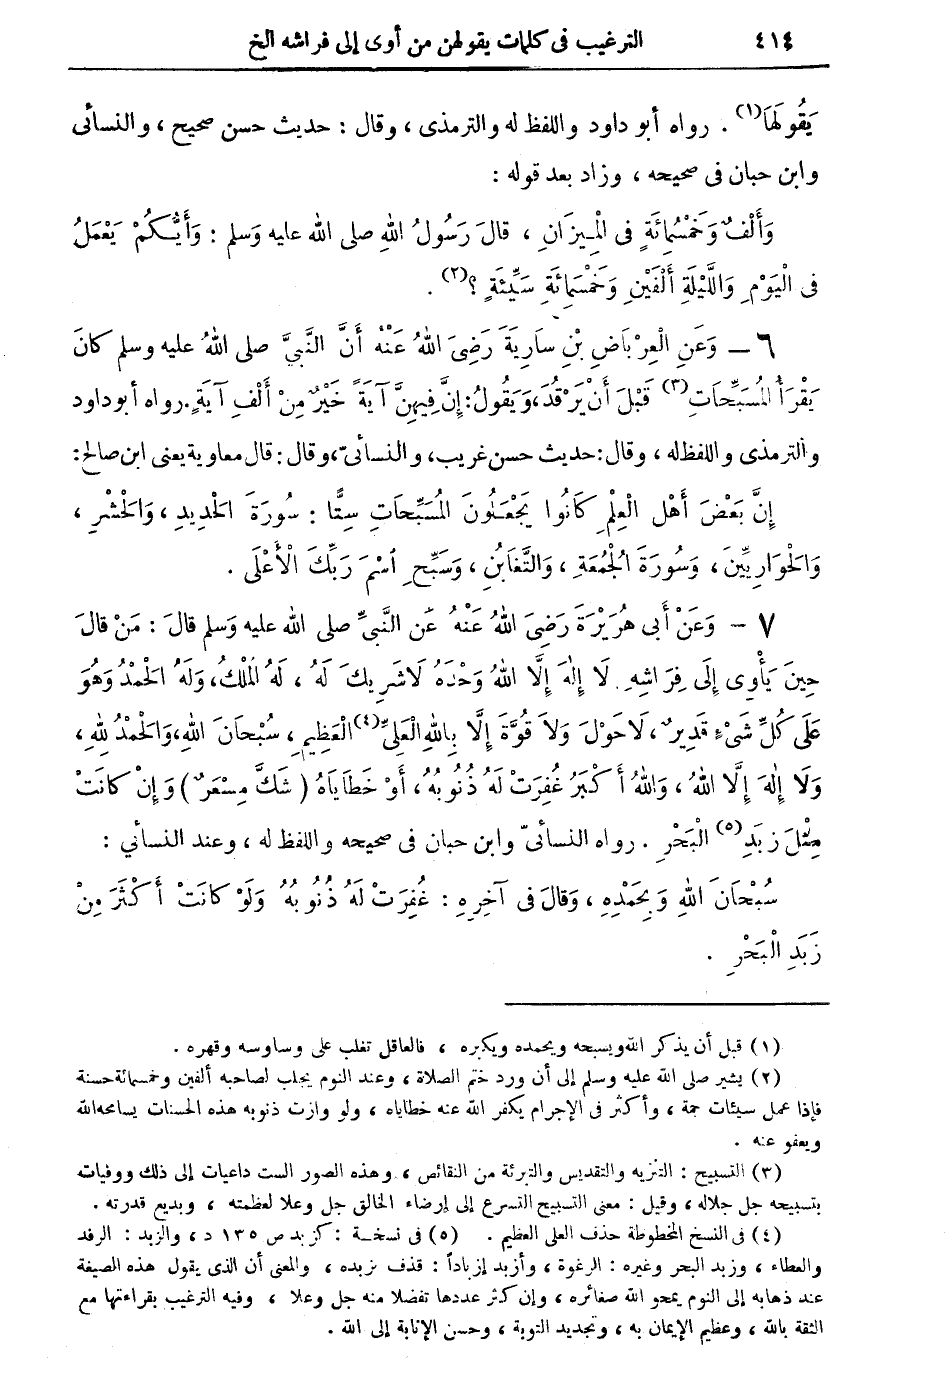 ٤١٤ الترغيب فى كلمات يقولهن من أوى إلى فراشه الخ
يَقُولَهَا(١) . رواه أبو داود واللفظ له والترمذى ، وقال : حديث حسن صحيح ، والنسائى
وابن حبان فى صحيحه ، وزاد بعد قوله :
وَأَلْفٌ وَخَمْسُمِائَةٍ فى الْمِيزَانِ ، قالَ رَسُولُ اللهِ صلى الله عليه وَسلم : وَأَيُّكُمْ يَعْمَلُ
فى الْيَوْمِ وَاللَّيْلَةِ أَلْفَيْنِ وَخَمْسَمِائَةِ سَيِّئَةٍ ؟(٢) .
٦ – وَعَنِ الْعِرْبَاضِ بْنِ سارِيَةَ رَضِىَ اللهُ عَنْهُ أَنَّ النَّبِيَّ صلى اللهُ عليه وسلم كانَ
يَقْرَأُ الْمُسَبِّحَاتِ(٣) قَبْلَ أَنْ يَرْقُدَ، وَيَقُولُ: إِنَّ فِيهِنَّ آيَةً خَيْرٌ مِنْ أَلْفِ آيَةٍ. رواه أبو داود
والترمذى واللفظ له ، وقال: حديث حسن غريب، والنسائىّ، وقال: قال معاوية يعنى ابن صالح:
إِنَّ بَعْضَ أَهْلِ الْعِلْمِ كَانُوا يَجْعَلُونَ الْمُسَبِّحَاتِ سِتًّا : سُورَةَ الْحَدِيدِ ، وَالْحَشْرِ ،
وَالْحَوَارِيِّينَ ، وَسُورَةَ الْجُمُعَةِ ، وَالتَّغَابُنِ ، وَسَبِّحِ اسْمَ رَبِّكَ الْأَعْلَى .
٧ – وَعَنْ أَبى هُرَيْرَةَ رَضِىَ اللهُ عَنْهُ عَنِ النَّبِيِّ صلى الله عليه وَسلم قالَ : مَنْ قالَ
حِينَ يَأْوِى إِلَى فِرَاشِهِ لَا إِلٰهَ إِلَّا اللهُ وَحْدَهُ لَاشَرِيكَ لَهُ ، لَهُ الْمُلْكُ، وَلَهُ الْحَمْدُ وَهُوَ
عَلَى كُلِّ شَىْءٍ قَدِيرٌ ، لَا حَوْلَ وَلاَ قُوَّةَ إِلَّا بِاللهِ الْعَلِيِّ(٤) الْعَظِيمِ ، سُبْحَانَ اللهِ، وَالْحَمْدُ لِلهِ ،
وَلَا إِلٰهَ إِلَّا اللهُ ، وَاللهُ أَكْبَرُ غُفِرَتْ لَهُ ذُنُوبُهُ ، أَوْ خَطَايَاهُ ( شَكَّ مِسْعَرٌ ) وَإِنْ كانَتْ
مِثْلَ زَبَدِ(٥) الْبَحْرِ . رواه النسائىّ وابن حبان فى صحيحه واللفظ له ، وعند النسائي :
سُبْحَانَ اللهِ وَبِحَمْدِهِ ، وَقالَ فى آخِرِهِ : غُفِرَتْ لَهُ ذُنُوبُهُ وَلَوْ كَانَتْ أَكْثَرَ مِنْ
زَبَدِ الْبَحْرِ .
(١) قبل أن يذكر الله ويسبحه ويحمده ويكبره ، فالعاقل تغلب على وساوسه وقهره .
(٢) يشير صلى الله عليه وسلم إلى أن ورد ختم الصلاة ، وعند النوم يجلب لصاحبه ألفين وخمسمائة حسنة
فإذا عمل سيئات جمة ، وأكثر فى الإجرام يكفر الله عنه خطاياه ، ولو وازت ذنوبه هذه الحسنات يسامحه الله
ويعفو عنه .
(٣) التسبيح : التنزيه والتقديس والتبرئة من النقائص ، وهذه الصور الست داعيات إلى ذلك ووفيات
بتسبيحه جل جلاله ، وقيل : معنى التسبيح التسرع إلى إرضاء الخالق جل وعلا لعظمته ، وبديع قدرته .
(٤) فى النسخ المخطوطة حذف العلى العظيم . (٥) فى نسخة : كزبد ص ١٣٥ د ، والزبد : الرفد
والعطاء ، وزبد البحر وغيره : الرغوة ، وأزبد إزباداً : قذف بزبده ، والمعنى أن الذى يقول هذه الصيغة
عند ذهابه إلى النوم يمحو الله صغائره ، وإن كثر عددها تفضلا منه جل وعلا ، وفيه الترغيب بقراءتها مع
الثقة بالله ، وعظيم الإيمان به ، وتجديد التوبة ، وحسن الإنابة إلى الله .